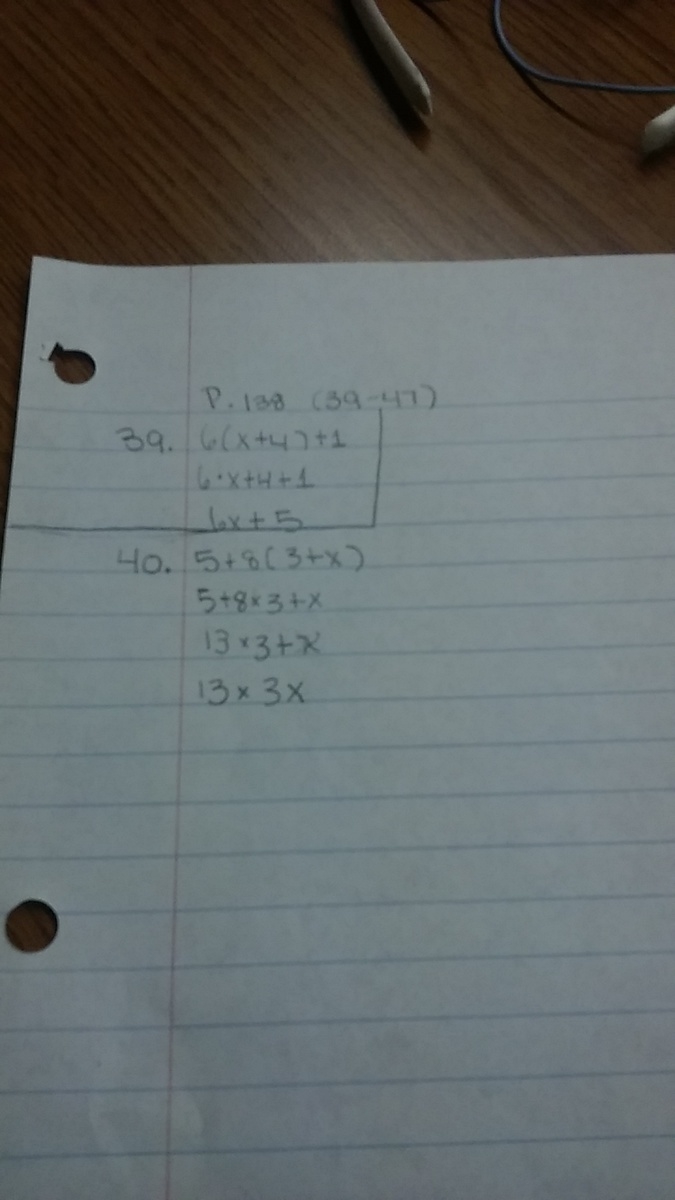 P. 138 (39-47)
39. 6(x+4)+1
6·x+4+1
6x+5
40. 5+8(3+x)
5+8×3+x
13×3+x
13× 3x